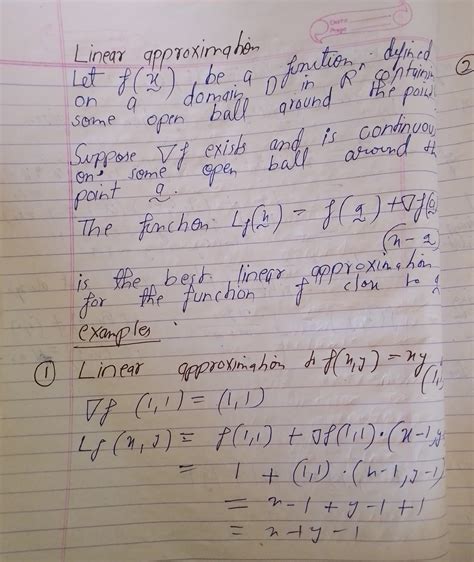 Linear approximation
Let f(x) be a function defined
on a domain D in Rⁿ containin
some open ball around the point
Suppose ∇f exists and is continuou
on some open ball around th
point a.
The function Lf(x) = f(a) + ∇f(a)
(x - a)
is the best linear approximation
for the function f close to a
examples :
① Linear approximation f(x,y) = xy
(1,
∇f (1,1) = (1,1)
Lf (x, y) = f(1,1) + ∇f(1,1)·(x-1,y-
= 1 + (1,1) · (x-1, y-1)
= x-1 + y-1 +1
= x+y-1
②